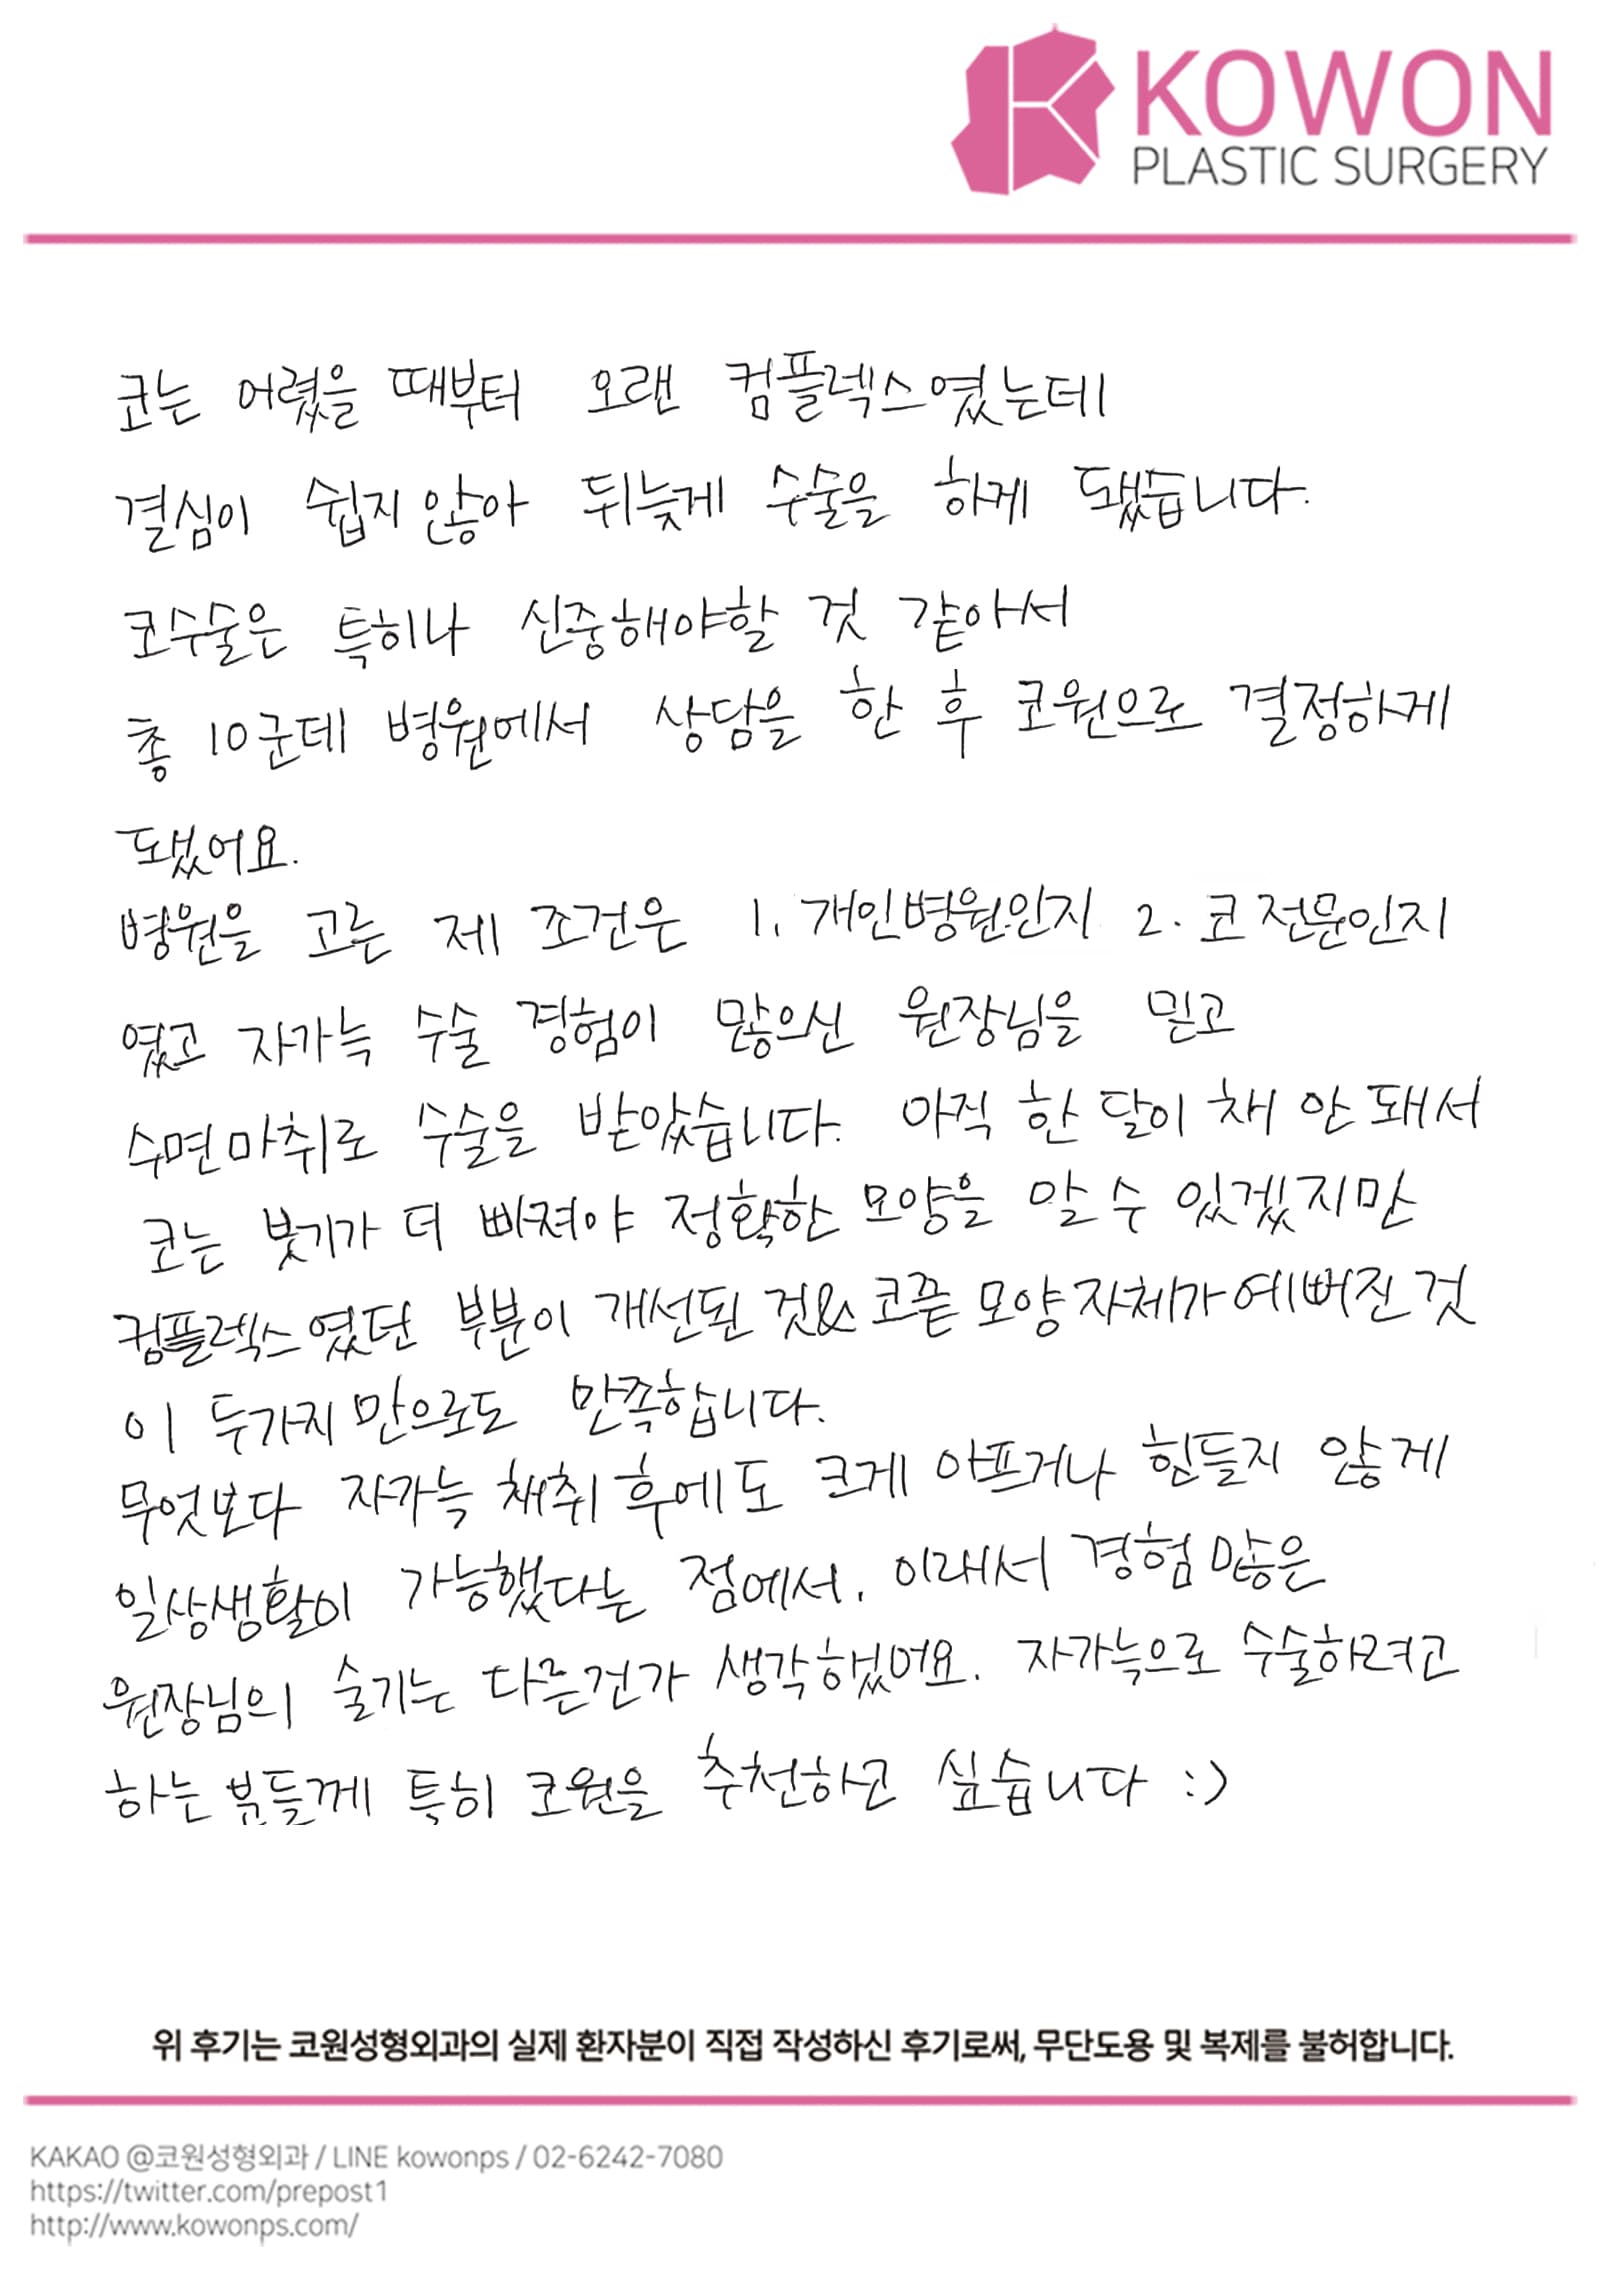 KOWON
PLASTIC SURGERY
코는 어렸을 때부터 오랜 컴플렉스였는데
결심이 쉽지 않아 뒤늦게 수술을 하게 됐습니다.
코수술은 특히나 신중해야할 것 같아서
총 10군데 병원에서 상담을 한 후 코원으로 결정하게
됐어요.
병원을 고른 제 조건은 1. 개인병원인지 2. 코 전문인지
였고 자가늑 수술 경험이 많으신 원장님을 믿고
수면마취로 수술을 받았습니다. 아직 한 달이 채 안 돼서
코는 붓기가 더 빠져야 정확한 모양을 알 수 있겠지만
컴플렉스였던 부분이 개선된 것 & 코끝 모양 자체가 예뻐진 것
이 두가지 만으로도 만족합니다.
무엇보다 자가늑 채취 후에도 크게 아프거나 힘들지 않게
일상생활이 가능했다는 점에서. 이래서 경험 많은
원장님의 술기는 다른건가 생각했어요. 자가늑으로 수술하려고
하는 분들께 특히 코원을 추천하고 싶습니다 :)
위 후기는 코원성형외과의 실제 환자분이 직접 작성하신 후기로써, 무단도용 및 복제를 불허합니다.
KAKAO @코원성형외과 / LINE kowonps / 02-6242-7080
https://twitter.com/prepost1
http://www.kowonps.com/